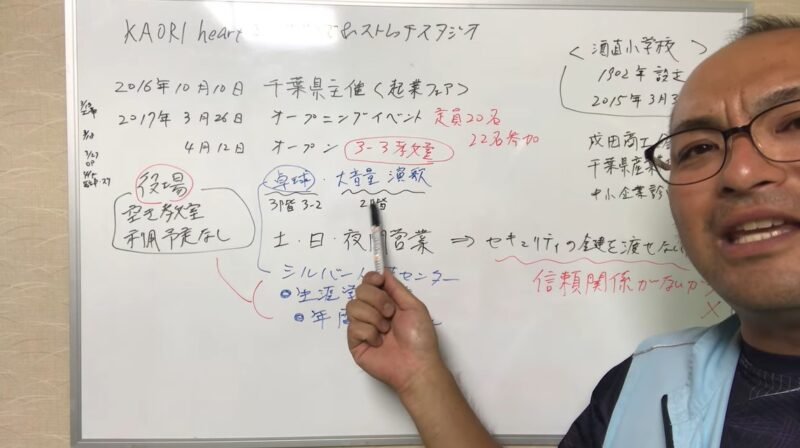 KAORI heart ストレッチスタジオ
<酒直小学校>
1902年 設立
2015年3月3
2016年10月10日 千葉県主催<起業フェア>
2017年 3月26日 オープニングイベント 定員20名
22名参加
4月12日 オープン 3-3教室
成田商工会
千葉県産業
中小企業診
役場
空き教室
利用予定なし
卓球・大音量 演歌
3階 3-2 2階
土・日・夜間営業 ⇒ セキュリティの鍵を渡せない
信頼関係がないから
シルバー人材センター
●生涯学
●年度